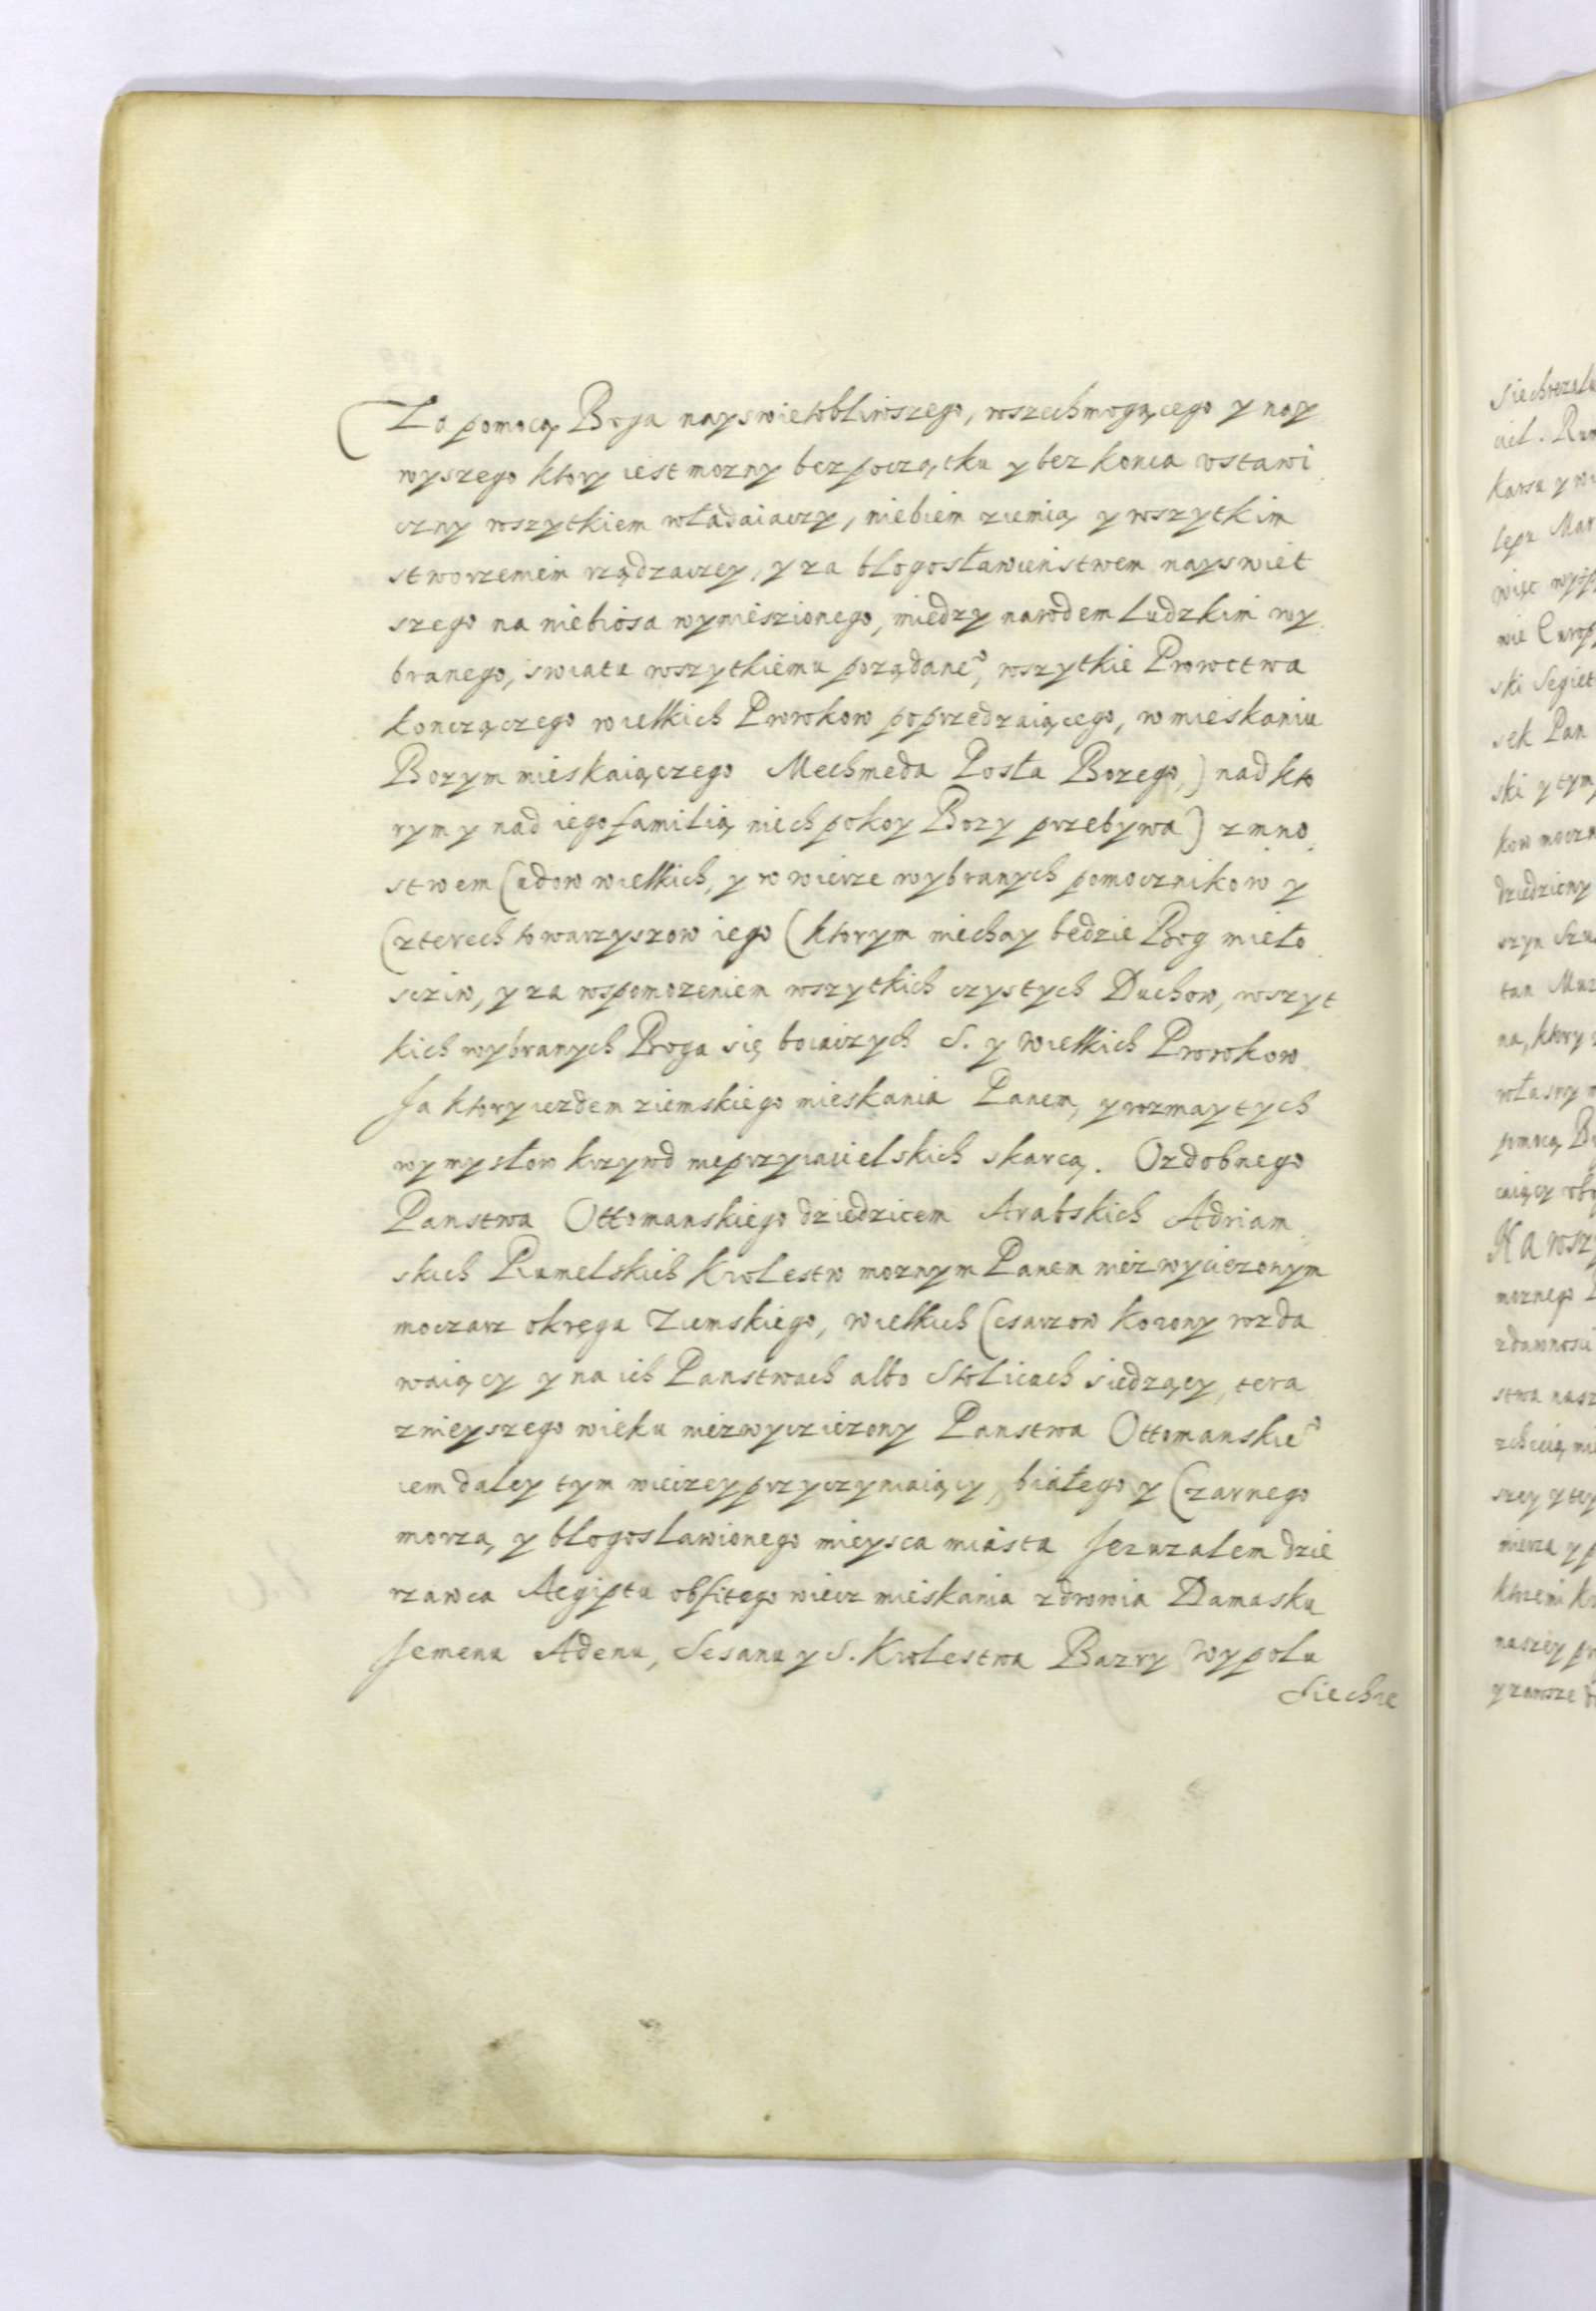 Za pomocą Boga nayswietobliwszego, wszechmogącego y nay
wyszego ktory iest mozny bez początku y bez konca vstawi
czny wszytkiem władaiaczy, niebiem ziemią y wszytkim
stworzeniem rządzaczy, y za błogosławienstwem nayswiet
szego na niebiosa wynieszionego, miedzy narodem ludzkim wy
branego, swiatu wszytkiemu poządane°, wszytkie Proroctwa
konczączego wielkich Prorokow poprzedzaiącego, w mieskaniu
Bozym mieskaiączego Mechmeda Posła Bozego,) nad kto
rym y nad iego familią niech pokoy Bozy przebywa) z mno
stwem Cudow wielkich, y w wierze wybranych pomocznikow y
Czterech towarzyszow iego (ktorym niechay bedzie Bog miło
scziw, y za wspomozeniem wszytkich czystych Duchow, wszyt
kich wybranych Boga się boiaczych S. y Wielkich Prorokow
Ja ktory iezdem ziemskiego mieskania Panem, y rozmaytych
wymysłow krzywd nieprzyiacielskich skarcą. Ozdobnego
Panstwa Ottomanskiego dziedzicem Arabskich Adriam
skich Rumelskich Krolestw moznym Panem niezwyciezonym
moczarz okręga Ziemskiego, wielkich Cesarzow Korony rozda
waiący y na ich Panstwach albo Stolicach siedzący, tera
znieyszego wieku niezwycziezony Panstwa Ottomanskie°
iem daley tym wieczey przyczyniaiący, białego y Czarnego
morza, y blogoslawionego mieysca miasta Jeruzalem dzie
rzawca Aegiptu obfitego wiecz mieskania zdrowia Damasku
Jemenu Adenu, Sesanu y S. Krolestwa Bazry Wypolu
Siechre